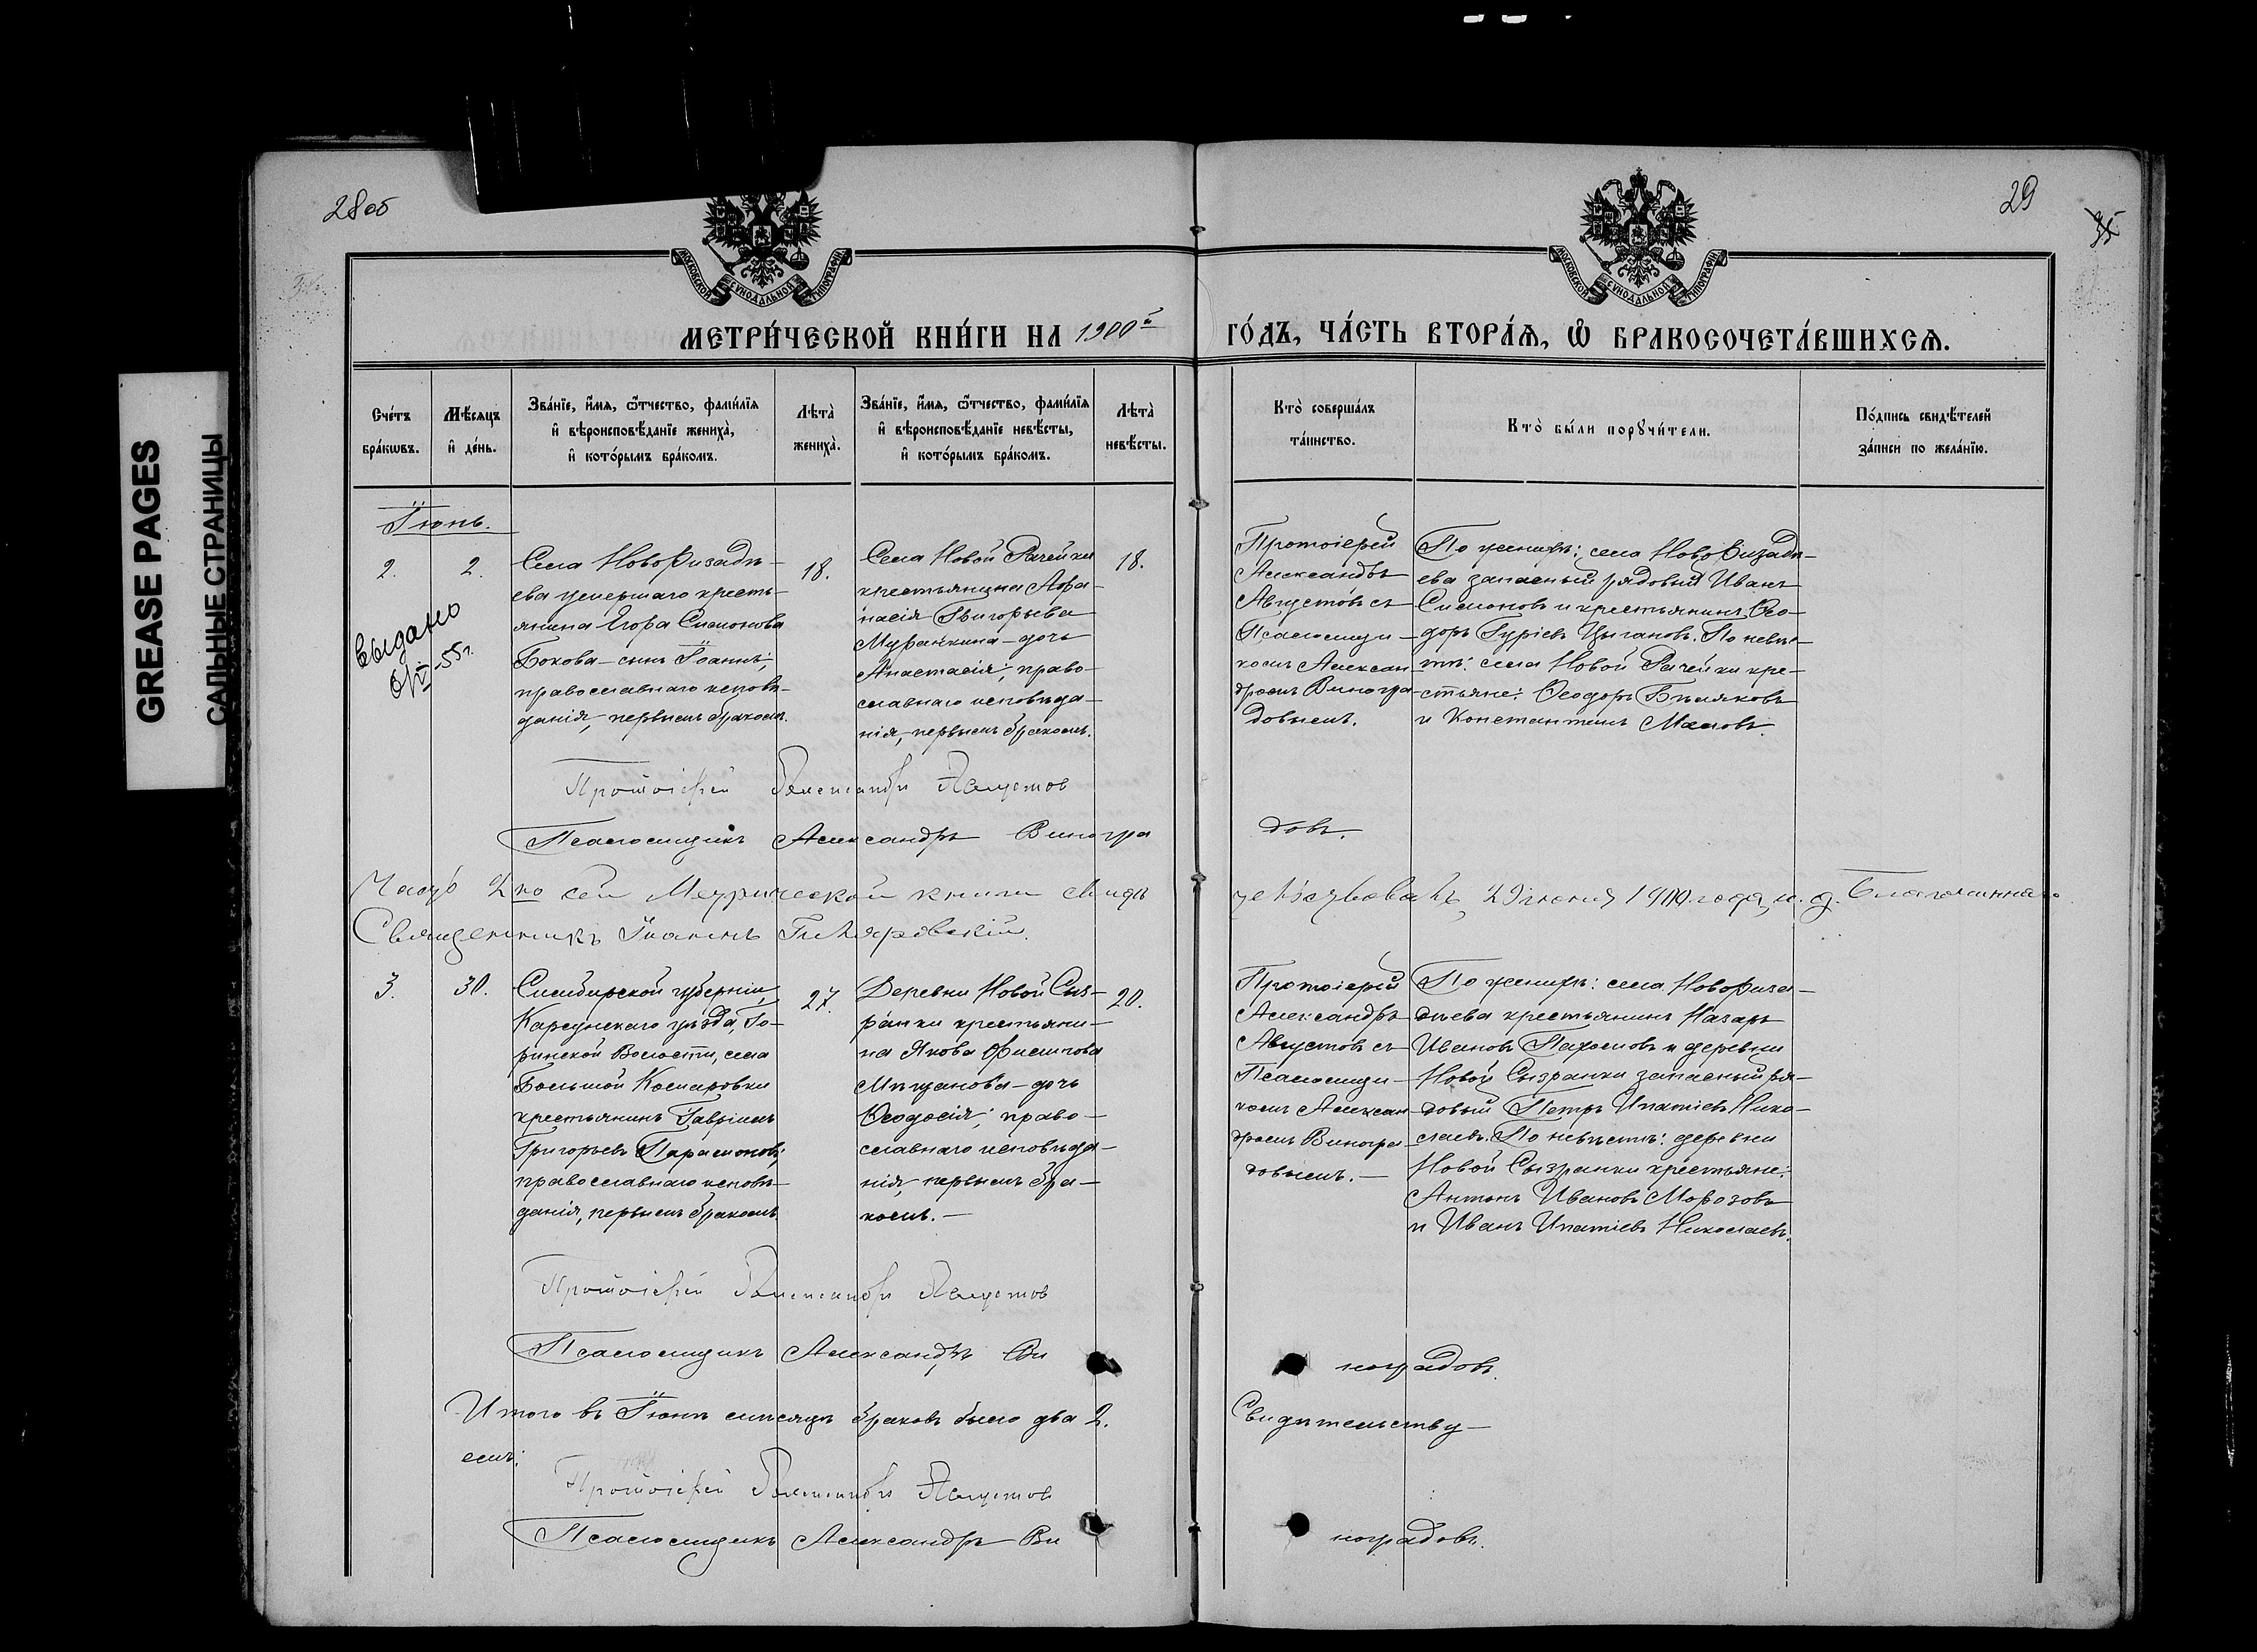 28 об
29
35
GREASE PAGES
САЛЬНЫЕ СТРАНИЦЫ
МОСКОВСКОЙ СУНОДАЛЬНОЙ ТИПОГРАФІИ
МОСКОВСКОЙ СУНОДАЛЬНОЙ ТИПОГРАФІИ
МЕТРИ́ЧЕСКОЙ КНИ́ГИ НА 1900й ГО́ДЪ, ЧА́СТЬ ВТОРА́Ѧ, Ѽ БРАКОСОЧЕТА́ВШИХСѦ.
Сче́тъ
бра́кѡвъ.
Мѣ́сяцъ
и҆ де́нь.
Зва́нїе, и҆́мя, ѻ҆́тчество, фами́лїя
и҆ вѣроисповѣ́данїе жениха̀,
и҆ кото́рымъ бра́комъ.
Лѣта̀
жениха̀.
Зва́нїе, и҆́мя, ѻ҆́тчество, фами́лїя
и҆ вѣроисповѣ́данїе невѣ́сты,
и҆ кото́рымъ бра́комъ.
Лѣта̀
невѣ́сты.
Кто̀ соверша́лъ
та́инство.
Кто̀ бы́ли порꙋчи́тели.
По́дпись свидѣ́телей
за́писи по жела́нїю.
Іюнь.
2.
2.
выдано
-55г.
Села Новоризадѣ-
ева умершаго кресть-
янина Егора Симонова
Бокова - сынъ Іоаннъ;
православнаго исповѣ-
данія, первымъ бракомъ.
18.
Села Новой Рачейки
крестьянина Аѳа-
насія Григорьева
Муранкина - дочь
Анастасія; право-
славнаго исповѣда-
нія, первымъ бракомъ.
18.
Протоіерей
Александръ
Августовъ съ
Псаломщи-
комъ Алексан-
дромъ Виногра-
довымъ.
По женихѣ: села Новоризадѣ-
ева запасный рядовый Иванъ
Симоновъ и крестьянинъ Ѳео-
доръ Гуріевъ Цыгановъ. По невѣс-
тѣ: села Новой Рачейки кре-
стьяне: Ѳеодоръ Бѣляковъ
и Константинъ Мамовъ.
Протоіерей Александръ Августов
Псаломщикъ Александръ Виногра довъ.
Часть 2ю сей Метрической книги свидѣ тельствовалъ, 29 июня 1900 года, и. д. Благочиннаго
Священникъ Іоаннъ Гиляровскій.
3.
30.
Симбирской губерніи,
Карсунскаго уѣзда, Го-
ринской Волости, села
Большой Комаровки
крестьянинъ Гавріилъ
Григорьевъ Парамоновъ;
православнаго исповѣ-
данія, первымъ бракомъ.
27.
Деревни Новой Сыз-
ранки крестьяни-
на Якова Филипова
Мѣщанова - дочь
Ѳеодосія; право-
славнаго исповѣда-
нія, первымъ бра-
комъ. -
20.
Протоіерей
Александръ
Августовъ съ
Псаломщи-
комъ Алексан-
дромъ Виногра-
довымъ. -
По женихѣ: села Новориза-
дѣева крестьянинъ Назаръ
Ивановъ Пахомовъ и деревни
Новой Сызранки запасный ря-
довый Петръ Ипатіевъ Нико-
лаевъ. По невѣстѣ: деревни
Новой Сызранки крестьяне:
Антонъ Ивановъ Морозовъ
и Иванъ Ипатіевъ Николаевъ.
Протоіерей Александръ Августов
Псаломщикъ Александръ Ви ноградовъ.
Итого въ Іюнѣ мѣсяцѣ браковъ было два 2. Свидѣтельству-
емъ:
Протоіерей Александръ Августов
Псаломщикъ Александръ Ви ноградовъ.